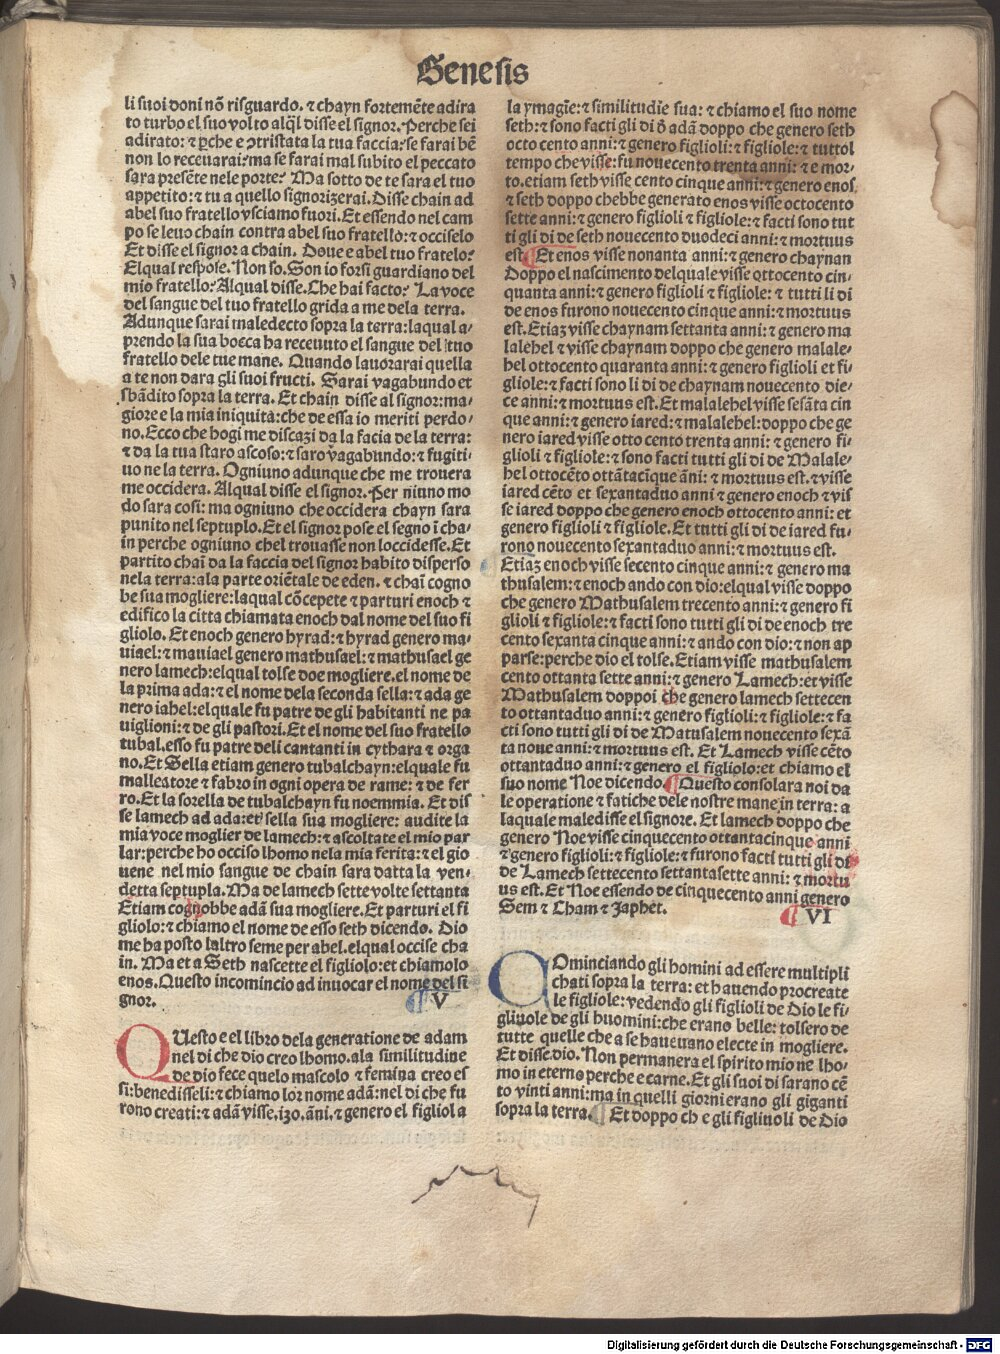 Genesis
li suoi doni nõ risguardo. ⁊ chayn fortemẽte adira
to turbo el suo volto alq̃l disse el signor. Perche sei
adirato: ⁊ ꝑche e ꝯtristata la tua faccia: se farai bẽ
non lo receuarai: ma se farai mal subito el peccato
sara presẽte nele porte? Ma sotto de te sara el tuo
appetito: ⁊ tu a quello signorizerai. Disse chain ad
abel suo fratello vsciamo fuori. Et essendo nel cam
po se leuo chain contra abel suo fratello: ⁊ occiselo
Et disse el signor a chain. Doue e abel tuo fratelo?
El qual respose. Non so. Son io forsi guardiano del
mio fratello? Al qual disse. Che hai facto? La voce
del sangue del tuo fratello grida a me dela terra.
Adunque sarai maledecto sopra la terra: laqual a-
prendo la sua bocca ha receuuto el sangue del tuo
fratello dele tue mane. Quando lauorarai quella
a te non dara gli suoi fructi. Sarai vagabundo et
sbãdito sopra la terra. Et chain disse al signor: ma-
giore e la mia iniquita: che de essa io meriti perdo-
no. Ecco che hogi me discazi da la facia de la terra:
⁊ da la tua staro ascoso: ⁊ saro vagabundo: ⁊ fugiti-
uo ne la terra. Ogniuno adunque che me trouera
me occidera. Al qual disse el signor. Per niuno mo
do sara cosi: ma ogniuno che occidera chayn sara
punito nel septuplo. Et el signor pose el segno ĩ cha-
in perche ogniuno chel trouasse non loccidesse. Et
partito chaĩ da la faccia del signor habito disperso
nela terra: ala parte oriẽtale de eden. ⁊ chaĩ cogno
be sua mogliere: laqual cõcepete ⁊ parturi enoch ⁊
edifico la citta chiamata enoch dal nome del suo fi
gliolo. Et enoch genero hyrad: ⁊ hyrad genero ma-
uiael: ⁊ mauiael genero mathusael: ⁊ mathusael ge
nero lamech: elqual tolse doe mogliere. el nome de
la prima ada: ⁊ el nome dela seconda sella: ⁊ ada ge
nero iabel: elquale fu patre de gli habitanti ne pa
uiglioni: ⁊ de gli pastori. Et el nome del suo fratello
tubal. esso fu patre deli cantanti in cythara ⁊ orga
no. Et Sella etiam genero tubalchayn: elquale fu
malleatore ⁊ fabro in ogni opera de rame: ⁊ de fer
ro. Et la sorella de tubalchayn fu noemmia. Et dis
se lamech ad ada: et sella sua mogliere: audite la
mia voce moglier de lamech: ⁊ ascoltate el mio par
lar: perche ho occiso lhomo nela mia ferita: ⁊ el gio
uene nel mio sangue de chain sara datta la ven-
detta septupla. Ma de lamech sette volte settanta
Etiam cognobbe adã sua mogliere. Et parturi el fi
gliolo: ⁊ chiamo el nome de esso seth dicendo. Dio
me ha posto laltro seme per abel. elqual occise cha
in. Ma et a Seth nascette el figliolo: et chiamolo
enos. Questo incomincio ad inuocar el nome del si
gnor. V
QUesto e el libro dela generatione de adam
nel di che dio creo lhomo. ala similitudine
de dio fece quelo mascolo ⁊ femina creo es
si: benedisseli: ⁊ chiamo lor nome adã: nel di che fu
rono creati: ⁊ adã visse. i30. ãni. ⁊ genero el figliol a
la ymagĩe: ⁊ similitudĩe sua: ⁊ chiamo el suo nome
seth: ⁊ sono facti gli di õ adã doppo che genero seth
octo cento anni: ⁊ genero figlioli: ⁊ figliole: ⁊ tuttol
tempo che visse: fu nouecento trenta anni: ⁊ e mor-
to. etiam seth visse cento cinque anni: ⁊ genero enos
⁊ seth doppo chebbe generato enos visse octocento
sette anni: ⁊ genero figlioli ⁊ figliole: ⁊ facti sono tut
ti gli di de seth nouecento duodeci anni: ⁊ mortuus
est. Et enos visse nonanta anni: ⁊ genero chaynan
Doppo el nascimento delquale visse ottocento cin-
quanta anni: ⁊ genero figlioli ⁊ figliole: ⁊ tutti li di
de enos furono nouecento cinque anni: ⁊ mortuus
est. Etiaz visse chaynam settanta anni: ⁊ genero ma
lalehel ⁊ visse chaynam doppo che genero malale-
hel ottocento quaranta anni: ⁊ genero figlioli et fi-
gliole: ⁊ facti sono li di de chaynam nouecento die-
ce anni: ⁊ mortuus est. Et malalehel visse sesãta cin
que anni: ⁊ genero iared: ⁊ malalehel: doppo che ge
nero iared visse otto cento trenta anni: ⁊ genero fi-
glioli ⁊ figliole: ⁊ sono facti tutti gli di de Malale-
hel ottocẽto ottãtacĩque ãni: ⁊ mortuus est. ⁊ visse
iared cẽto et sexantaduo anni ⁊ genero enoch ⁊ vis
se iared doppo che genero enoch ottocento anni: et
genero figlioli ⁊ figliole. Et tutti gli di de iared fu-
rono nouecento sexantaduo anni: ⁊ mortuus est.
Etiaz enoch visse secento cinque anni: ⁊ genero ma
thusalem: ⁊ enoch ando con dio: elqual visse doppo
che genero Mathusalem trecento anni: ⁊ genero fi
glioli ⁊ figliole: ⁊ facti sono tutti gli di de enoch tre
cento sexanta cinque anni: ⁊ ando con dio: ⁊ non ap
parse: perche dio el tolse. Etiam visse mathusalem
cento ottanta sette anni: ⁊ genero Lamech: et visse
Mathusalem doppoi che genero lamech settecen
to ottantaduo anni: ⁊ genero figlioli: ⁊ figliole: ⁊ fa
cti sono tutti gli di de Matusalem nouecento sexã
ta noue anni: ⁊ mortuus est. Et Lamech visse cẽto
ottantaduo anni: ⁊ genero el figliolo: et chiamo el
suo nome Noe dicendo. Questo consolara noi da
le operatione ⁊ fatiche dele nostre mane in terra: a
laquale maledisse el signore. Et lamech doppo che
genero Noe visse cinquecento ottantacinque anni
⁊ genero figlioli: ⁊ figliole: ⁊ furono facti tutti gli di
de Lamech settecento settantasette anni: ⁊ mortu
us est. Et Noe essendo de cinquecento anni genero
Sem ⁊ Cham ⁊ Japhet.
VI
COminciando gli homini ad essere multipli
chati sopra la terra: et hauendo procreate
le figliole: vedendo gli figlioli de Dio le fi-
gliuole de gli huomini: che erano belle: tolsero de
tutte quelle che a se haueuano electe in mogliere.
Et disse dio. Non permanera el spirito mio ne lho-
mo in eterno perche e carne. Et gli suoi di sarano cẽ
to vinti anni: ma in quelli giorni erano gli giganti
sopra la terra. Et doppo ch e gli figliuoli de Dio
Digitalisierung gefördert durch die Deutsche Forschungsgemeinschaft - DFG